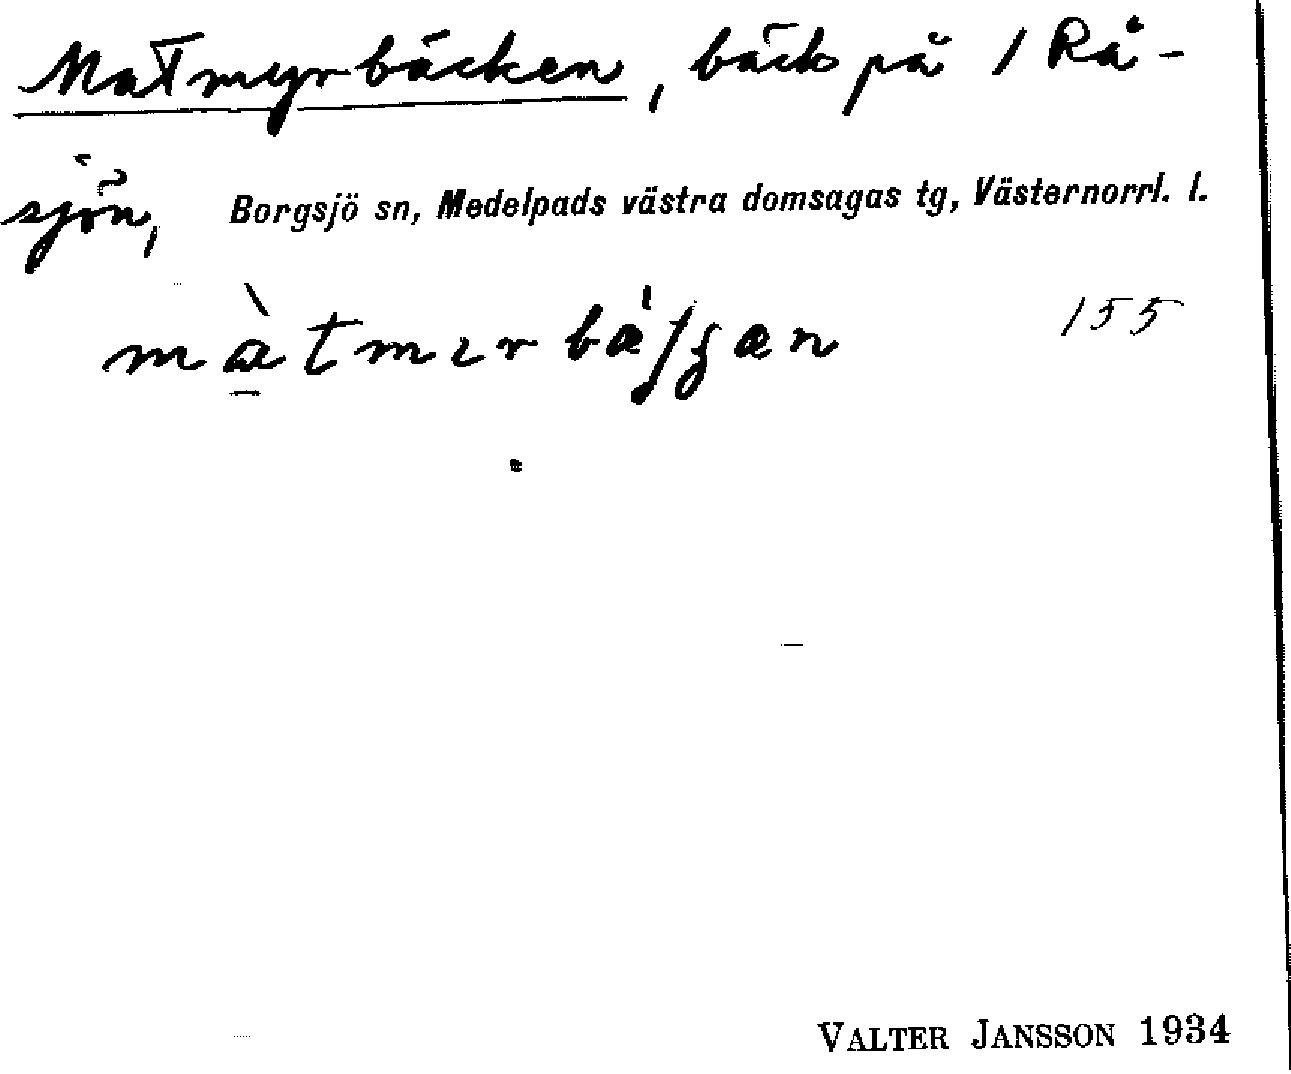 Matmyrbäcken, bäck på 1 Rå-
sjön, Borgsjö sn, Medelpads västra domsagas tg, Västernorrl. l.
155
VALTER JANSSON 1934